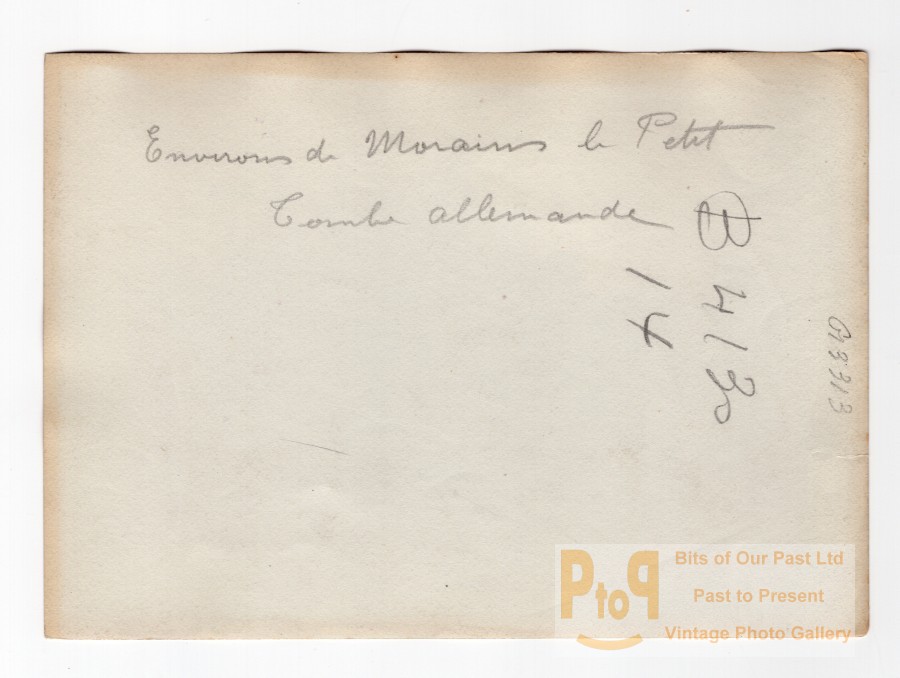 Environs de Morains le Petit
Tombe allemande
B 413
14
G8313
PtoP
Bits of Our Past Ltd
Past to Present
Vintage Photo Gallery